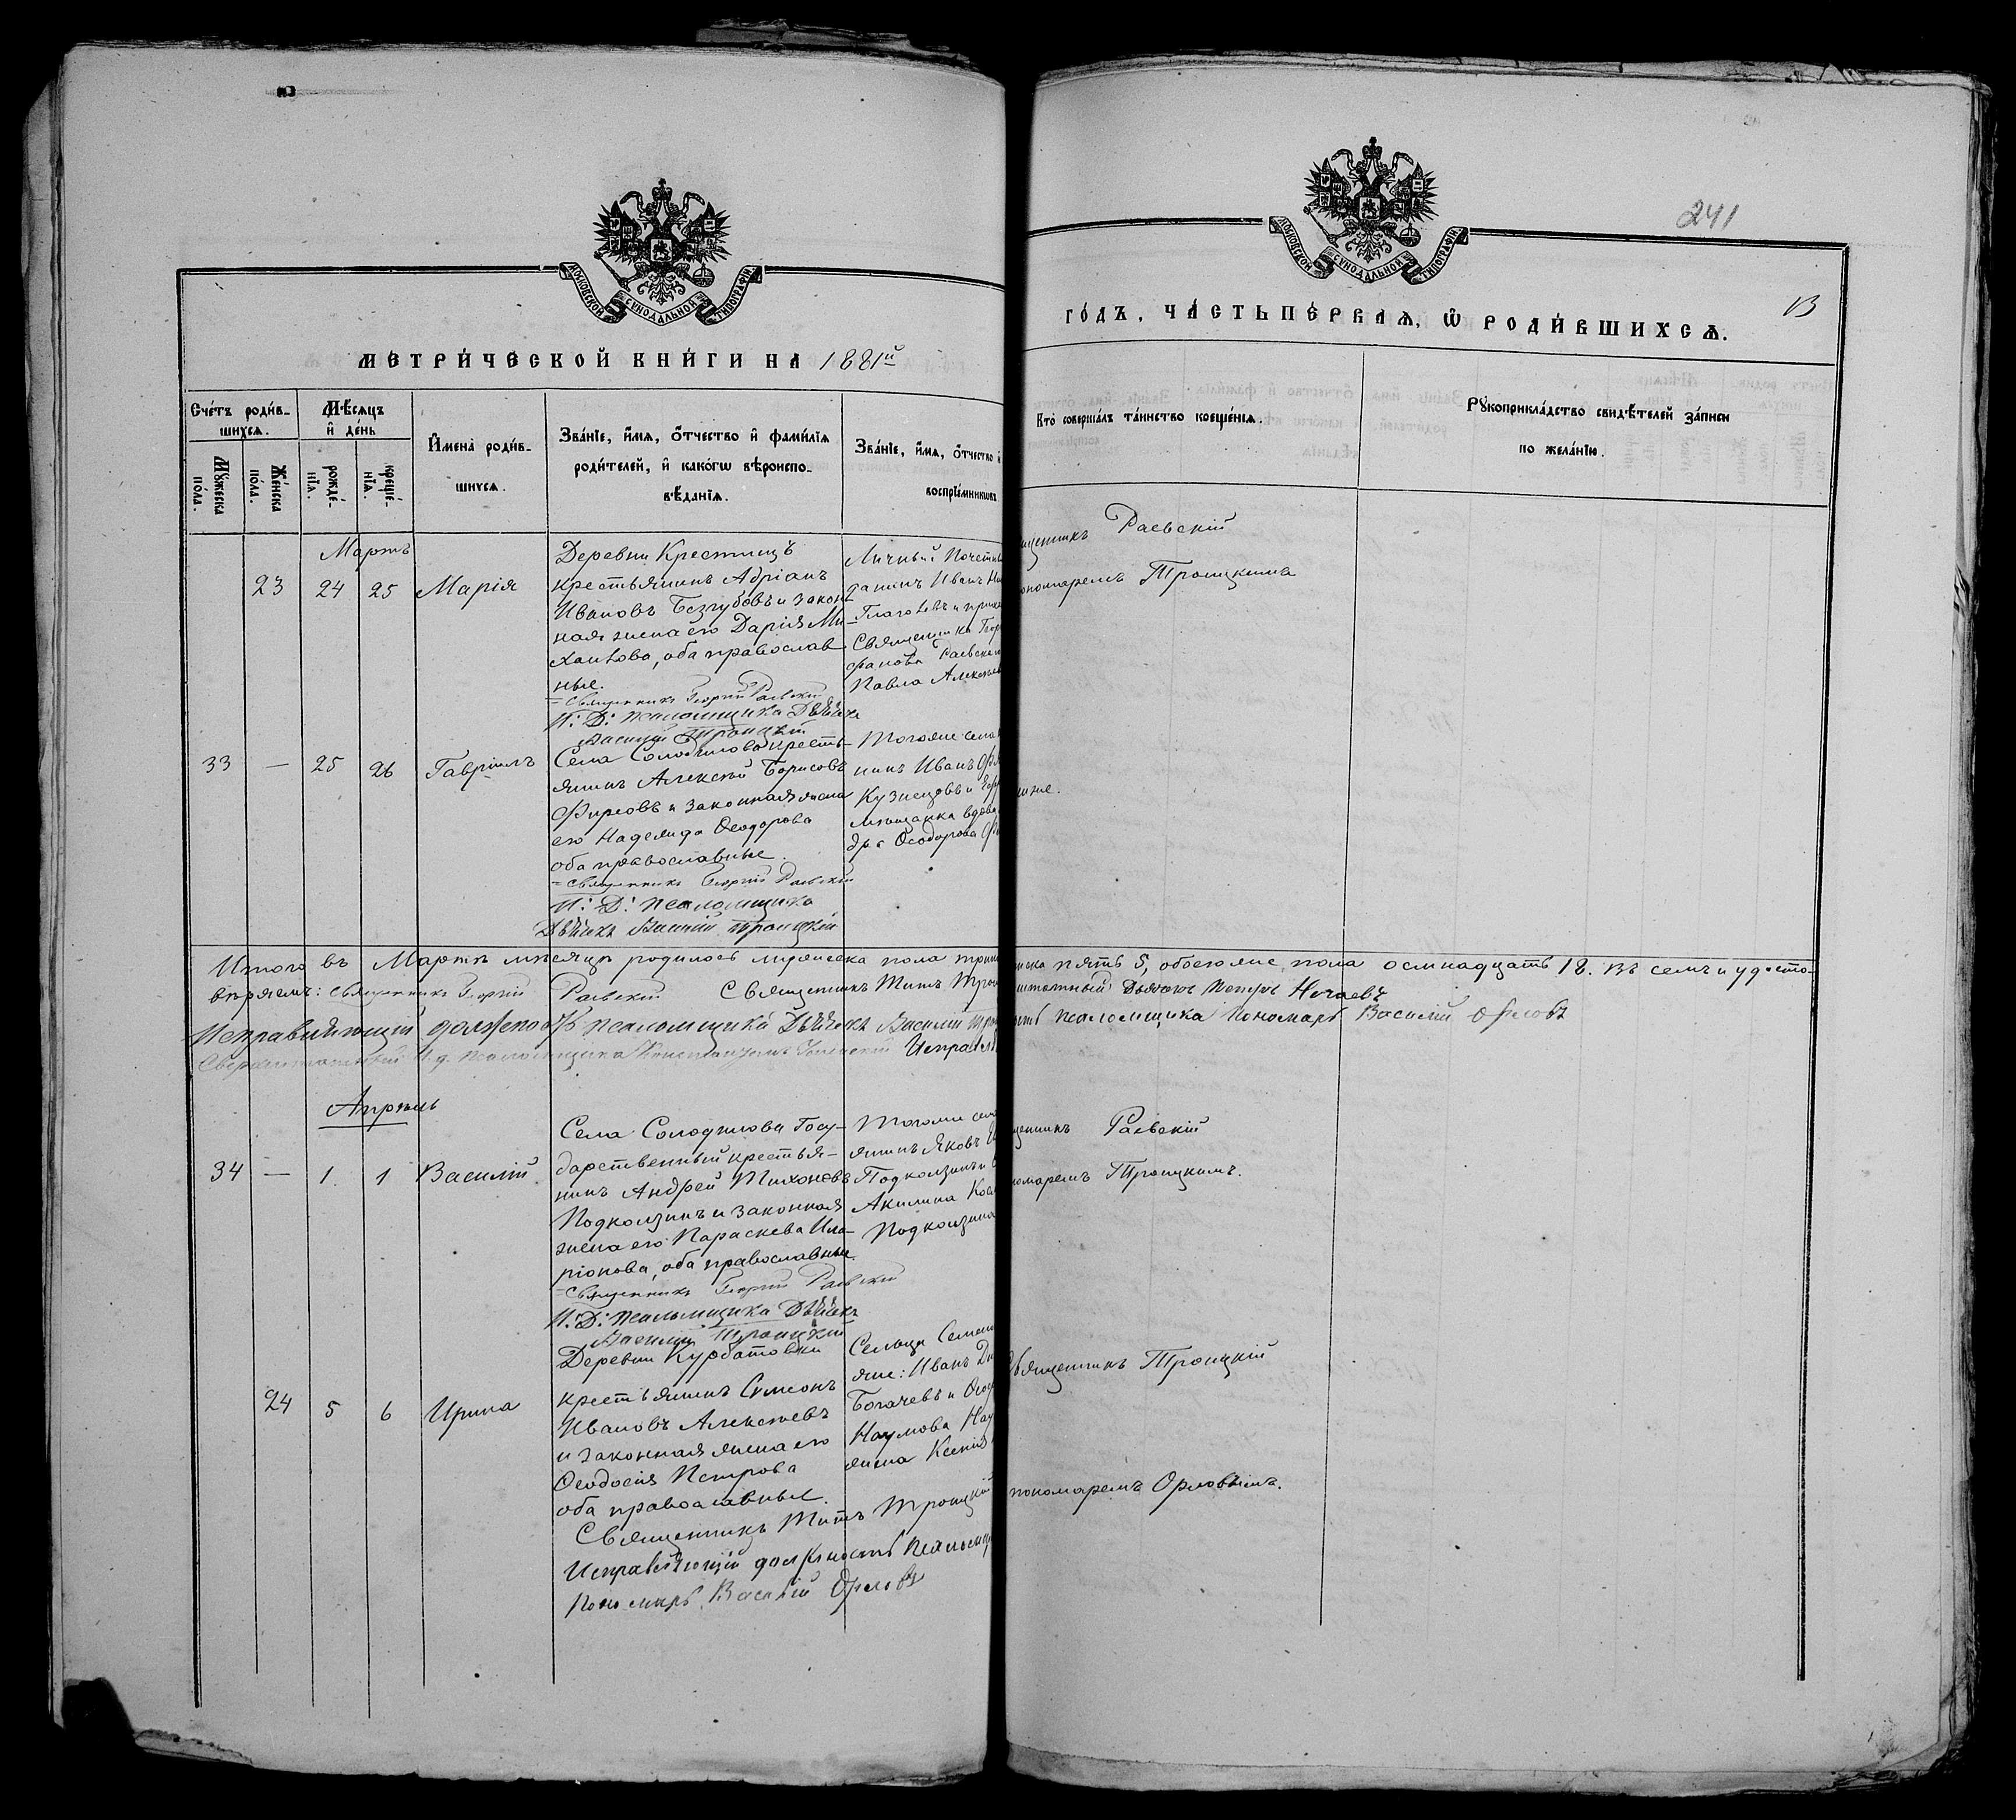 241
13
МОСКОВСКОЙ СУНОДАЛЬНОЙ ТИПОГРАФІИ
МОСКОВСКОЙ СУНОДАЛЬНОЙ ТИПОГРАФІИ
МЕТРИ́ЧЕСКОЙ КНИ́ГИ НА 1881й
ГО́ДЪ, ЧА́СТЬ ПЕ́РВАѦ, Ѡ РОДИ́ВШИХСѦ.
Сче́тъ роди́в-
шихсѧ.
Мꙋ́жеска по́ла.
Же́нска по́ла.
Мѣ́сѧцъ
и де́нь
рожде́-
нїѧ.
креще́-
нїѧ.
Имена̀ роди́в-
шихсѧ.
Зва́нїе, и́мѧ, ѻ́тчество и фами́лїѧ
роди́телей, и како́гѡ вѣроиспо-
вѣ́данїѧ.
Зва́нїе, и́мѧ, ѻ́тчество и
воспрїе́мникѡвъ
Кто̀ соверша́лъ та́инство креще́нїѧ.
Рꙋкоприкла́дство свидѣ́телей за́писи
по жела́нїю.
Мартъ
23 24 25 Марія
Деревни Крестищъ
крестьянинъ Адріанъ
Ивановъ Беззубовъ и закон-
ная жена его Дарія Ми
хаилова, оба православ
ные.
=Священникъ Георгій Раевскій
И: Д: псаломщика Дьячекъ
Василий Троицкій
Личный Почетн
Глаголевъ и
Священника Геор
Раевска
Павла Алексѣев
щенникъ Раевскій
ономаремъ Троицкимъ
33 — 25 26 Гавріилъ
Села Солодилова кресть-
янинъ Алексѣй Борисовъ
Фирсовъ и законная жена
его Надежда Ѳеодорова
оба православные.
=Священникъ Георгій Раевскій
И: Д: псаломщика
Дьячекъ Василий Троицкій
Тогоже села
нинъ Иванъ
Кузнецовъ и
мѣщанка вдова
Ѳеодорова
Итого въ Мартѣ мѣсяцѣ родилось мужеска пола трин
нска пять 5, обоего же пола осмнадцать 18. Въ семъ и удосто-
вѣряемъ: Священникъ Георгій Раевскій Священникъ Титъ Трои
штатный Дьячекъ Петръ Нечаевъ
Исправляющій должность псаломщика Дьячекъ Василий Трои
ость псаломщика Пономарь Василий Орловъ
Сверхштатный И.д. псаломщика Константинъ Исправл
Апрѣль
34 — 1 1 Василій
Села Солодилова Госу-
дарственный крестья-
нинъ Андрей Тихоновъ
Подколзинъ и законная
жена его Параскева Ила-
ріонова, оба православные.
=Священникъ Георгій Раевскій
И: Д: псаломщика Дьячекъ
Василий Троицкій
Тогоже села
янинъ Яковъ
Подколзинъ и
Акилина Косм
Подколзина
щенникъ Раевскій
номаремъ Троицкимъ.
24 5 6 Ирина
Деревни Курбатовки
крестьянинъ Симеонъ
Ивановъ Алексѣевъ
и законная жена его
Ѳеодосія Петрова
оба православные.
Священникъ Титъ Троицкій
Исправляющій должность псаломщ
Пономарь Василий Орловъ
Сельца Семен
яне: Иванъ
Богачевъ и
Наумова
жена Ксенія
Священникъ Троицкій
пономаремъ Орловымъ.